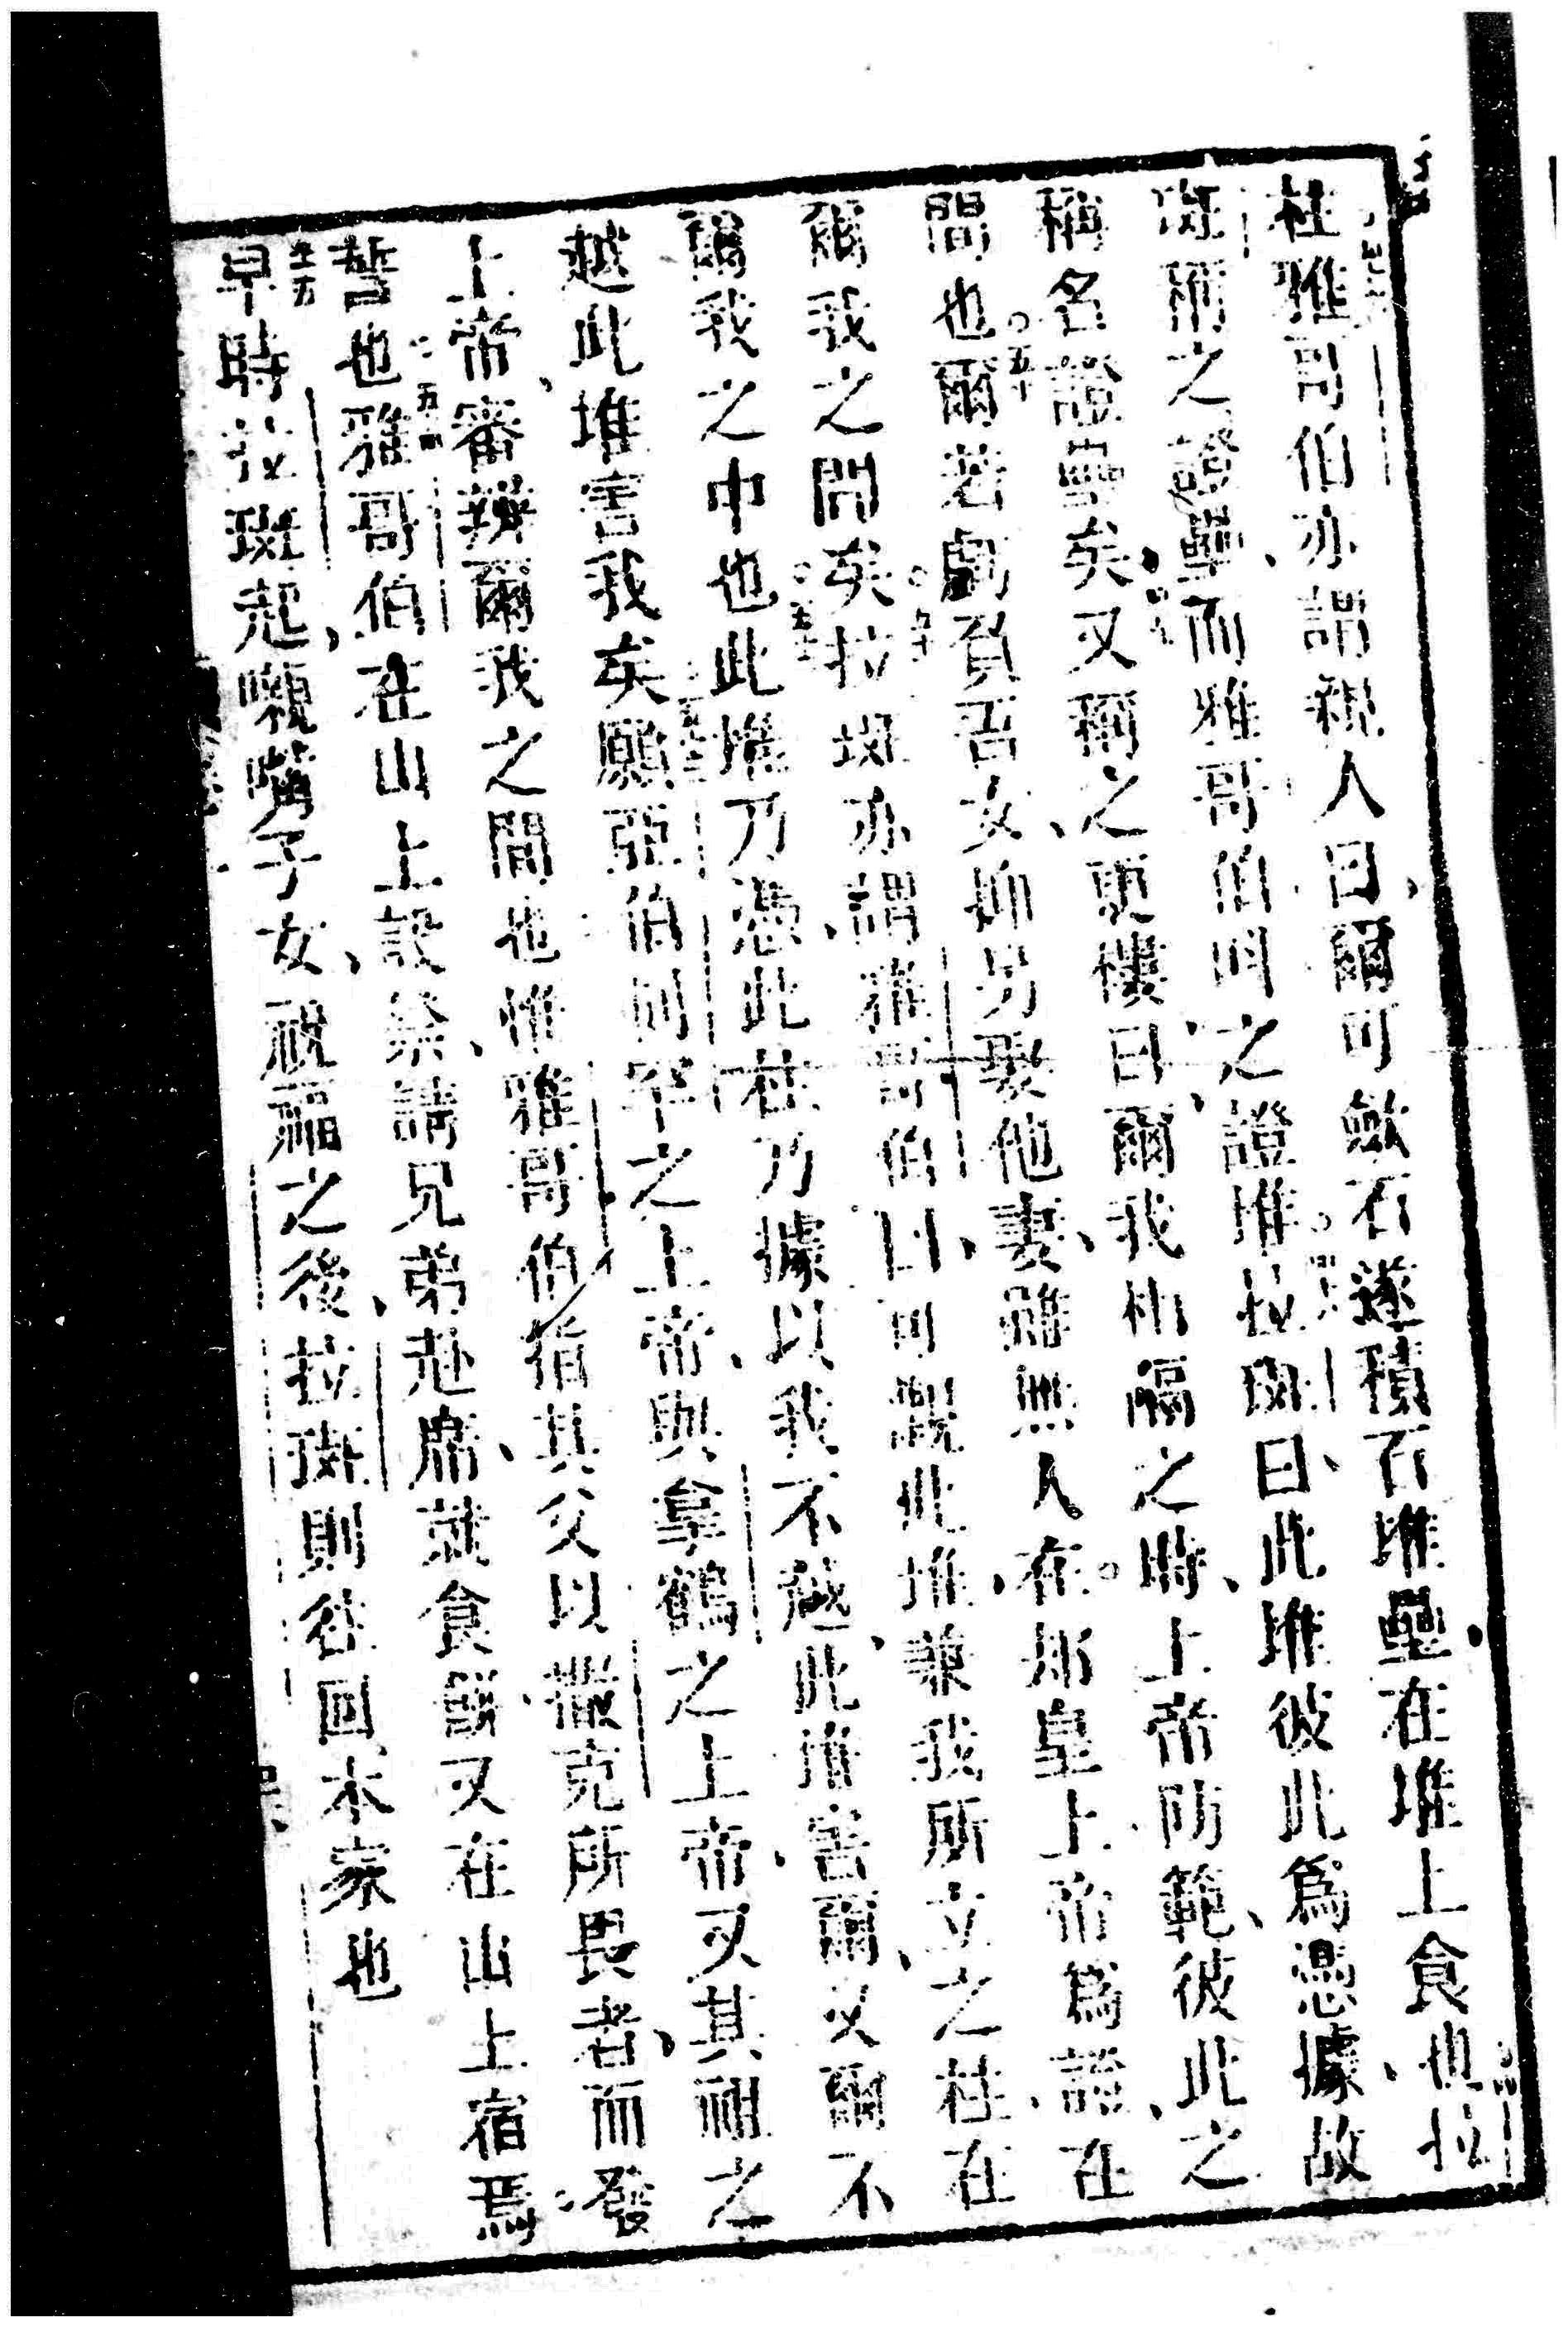 柱雅哥伯亦謂親人曰爾可斂石遂積石堆壘在堆上食也拉
斑稱之證壘、而雅哥伯叫之證堆。拉斑曰、此堆彼此爲憑據、故
稱名證壘矣、又稱之更樓曰、爾我相隔之時、上帝防範、彼此之
間也。五十爾若虧負吾女、抑另娶他妻、雖無人在。却皇上帝爲證、在
爾我之間矣。拉斑亦謂雅哥伯曰、可觀此堆、兼我所立之柱在
爾我之中也。此堆乃憑、此柱乃據、以我不越此堆害爾、又爾不
越此堆害我矣。願亞伯拉罕之上帝、與拿鶴之上帝、又其祖之
上帝、審辨爾我之間也。惟雅哥伯指其父以撒克所畏者、而發
誓也。五四雅哥伯在山上設祭、請兄弟赴席、就食餅又在山上宿焉
五五早時拉斑起、嚫嘴子女、祝福之後、拉斑則往回本家也